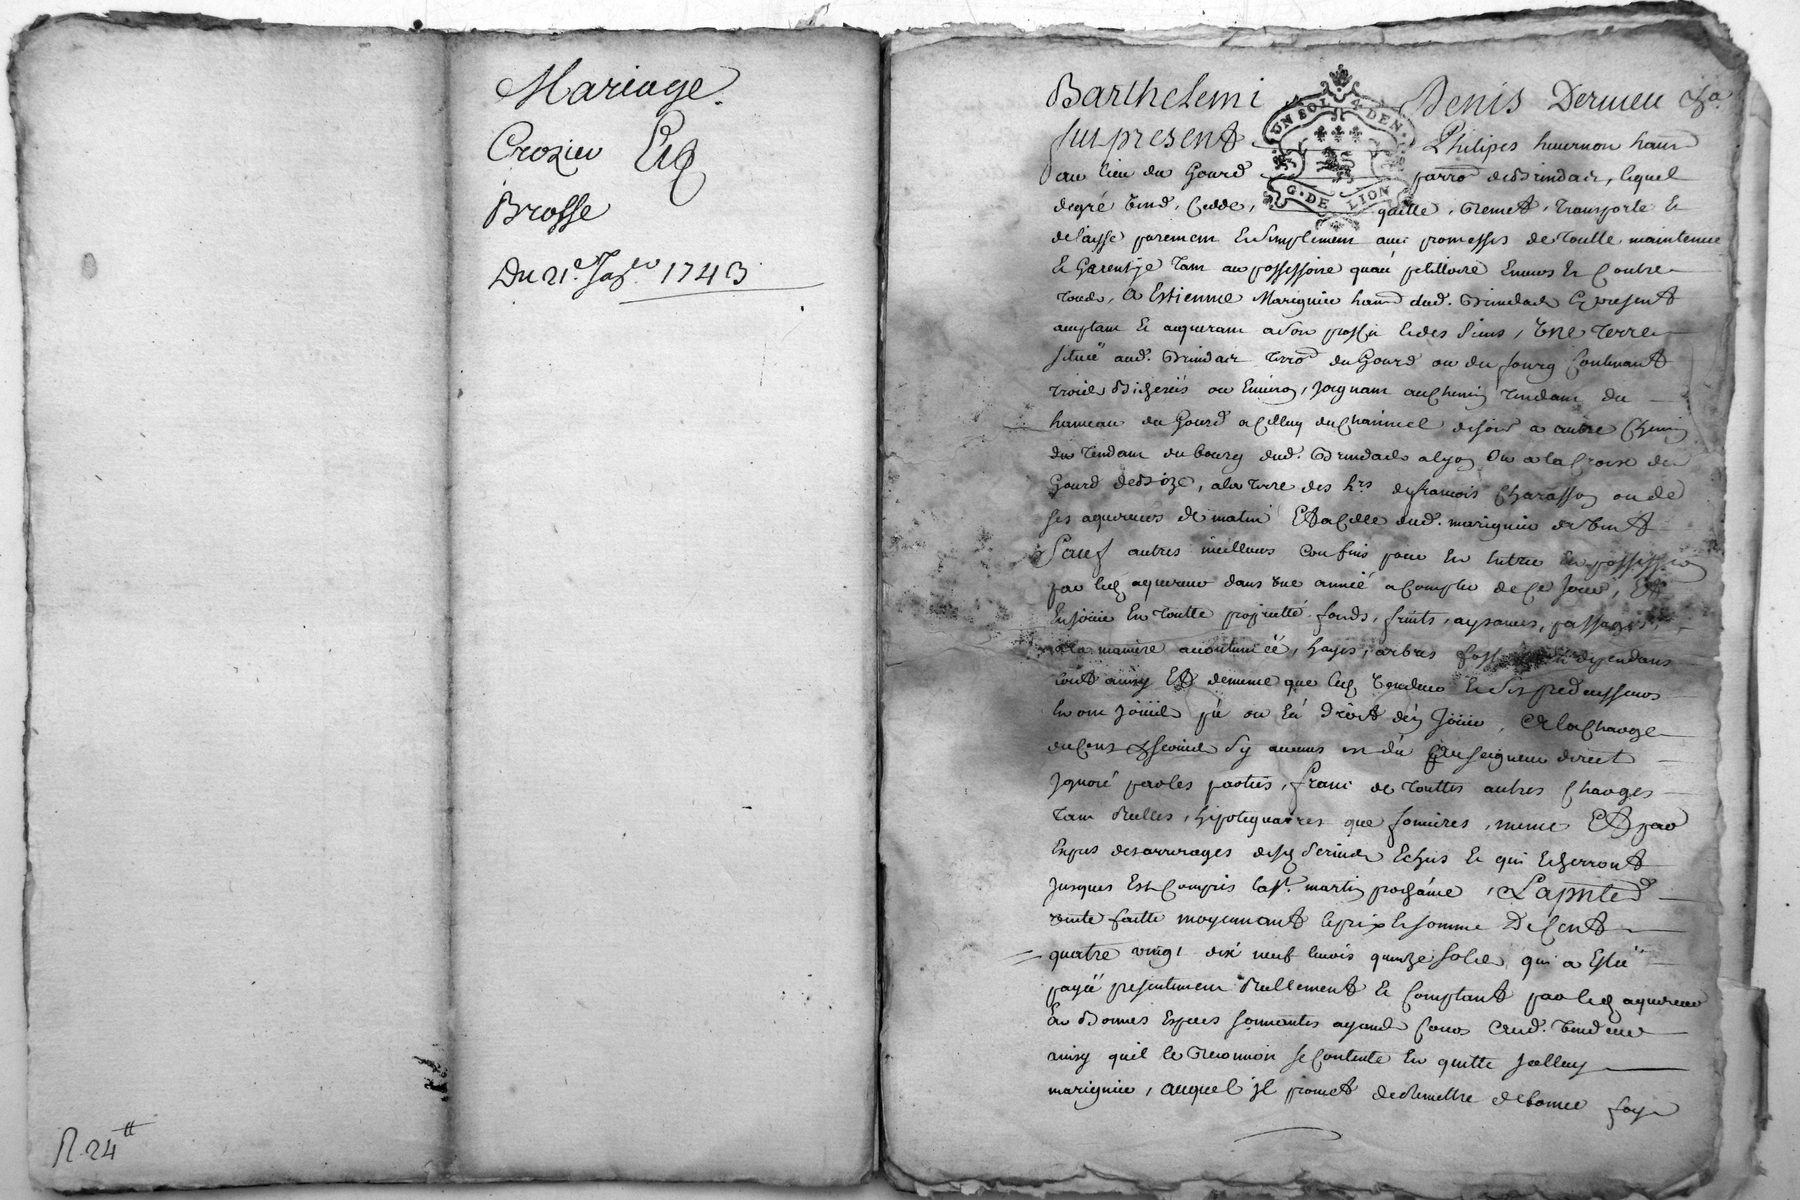 Mariage
Crozier Et
Brosse
Du 21e Janer 1743
R 24tt
Barthelemi Denis Dervieu
UN SOL 4 DEN.
G. DE LION
fut present Philipes
au lieu du Gourd parro de Brindas, lequel
de gré vend, cedde, quitte, remet, transporte &
delaisse purement & simplement avec promesses de toutte maintenue
& garentye tant au possessoire quau petitoire envers & contre
tous, A Estienne Marignier dud. Brindas & present
acceptant & acquerant a son proffit & des siens, Une Terre
situeë aud. Brindas du Gourd ou du contenant
trois Bicherées ou environ, joignant au chemin tendant du
hameau du Gourd a celluy du de soir a autre chemin
tendant du bourg dud. Brindas a lyon ou a la Croix du
Gourd de bize, a la terre des hrs de francois Charasson ou de
ses aquereurs de matin Et a celle dud. marignier de vent
Sauf autres meilleurs confins pour en entrer en possession
par led aquereur dans une année a compter de ce jour, Et
en jouir en toutte proprietté fonds, fruits, aysances, passages,
a la maniere accoutumeë, hayes, arbres dependans
tout ainsy Et dememe que led vendeur & ses predecesseurs
en ont joüi pû ou eû droit dëy joüir, & a la charge
du cens & servis sy aucuns en du au seigneur direct
ignoré par les parties, franc de touttes autres charges
tant reelles, hipotequaires que foncieres, meme Et par
expres des arrerages desd servis echus & qui echerront
jusques Est compris la st. martin prochaine, La pnted
vente faitte moyennant le prix & somme De Cent
quatre vingt dix neuf livres quinze sols, qui a esteë
payeë presentement reellement & comptant par led aquereur
en bonnes especes sonnantes ayans cours aud. vendeur
ainsy quil le reconnoit se contente en quitte jcelluy
marignier, auquel jl promet de remettre de bonne foy